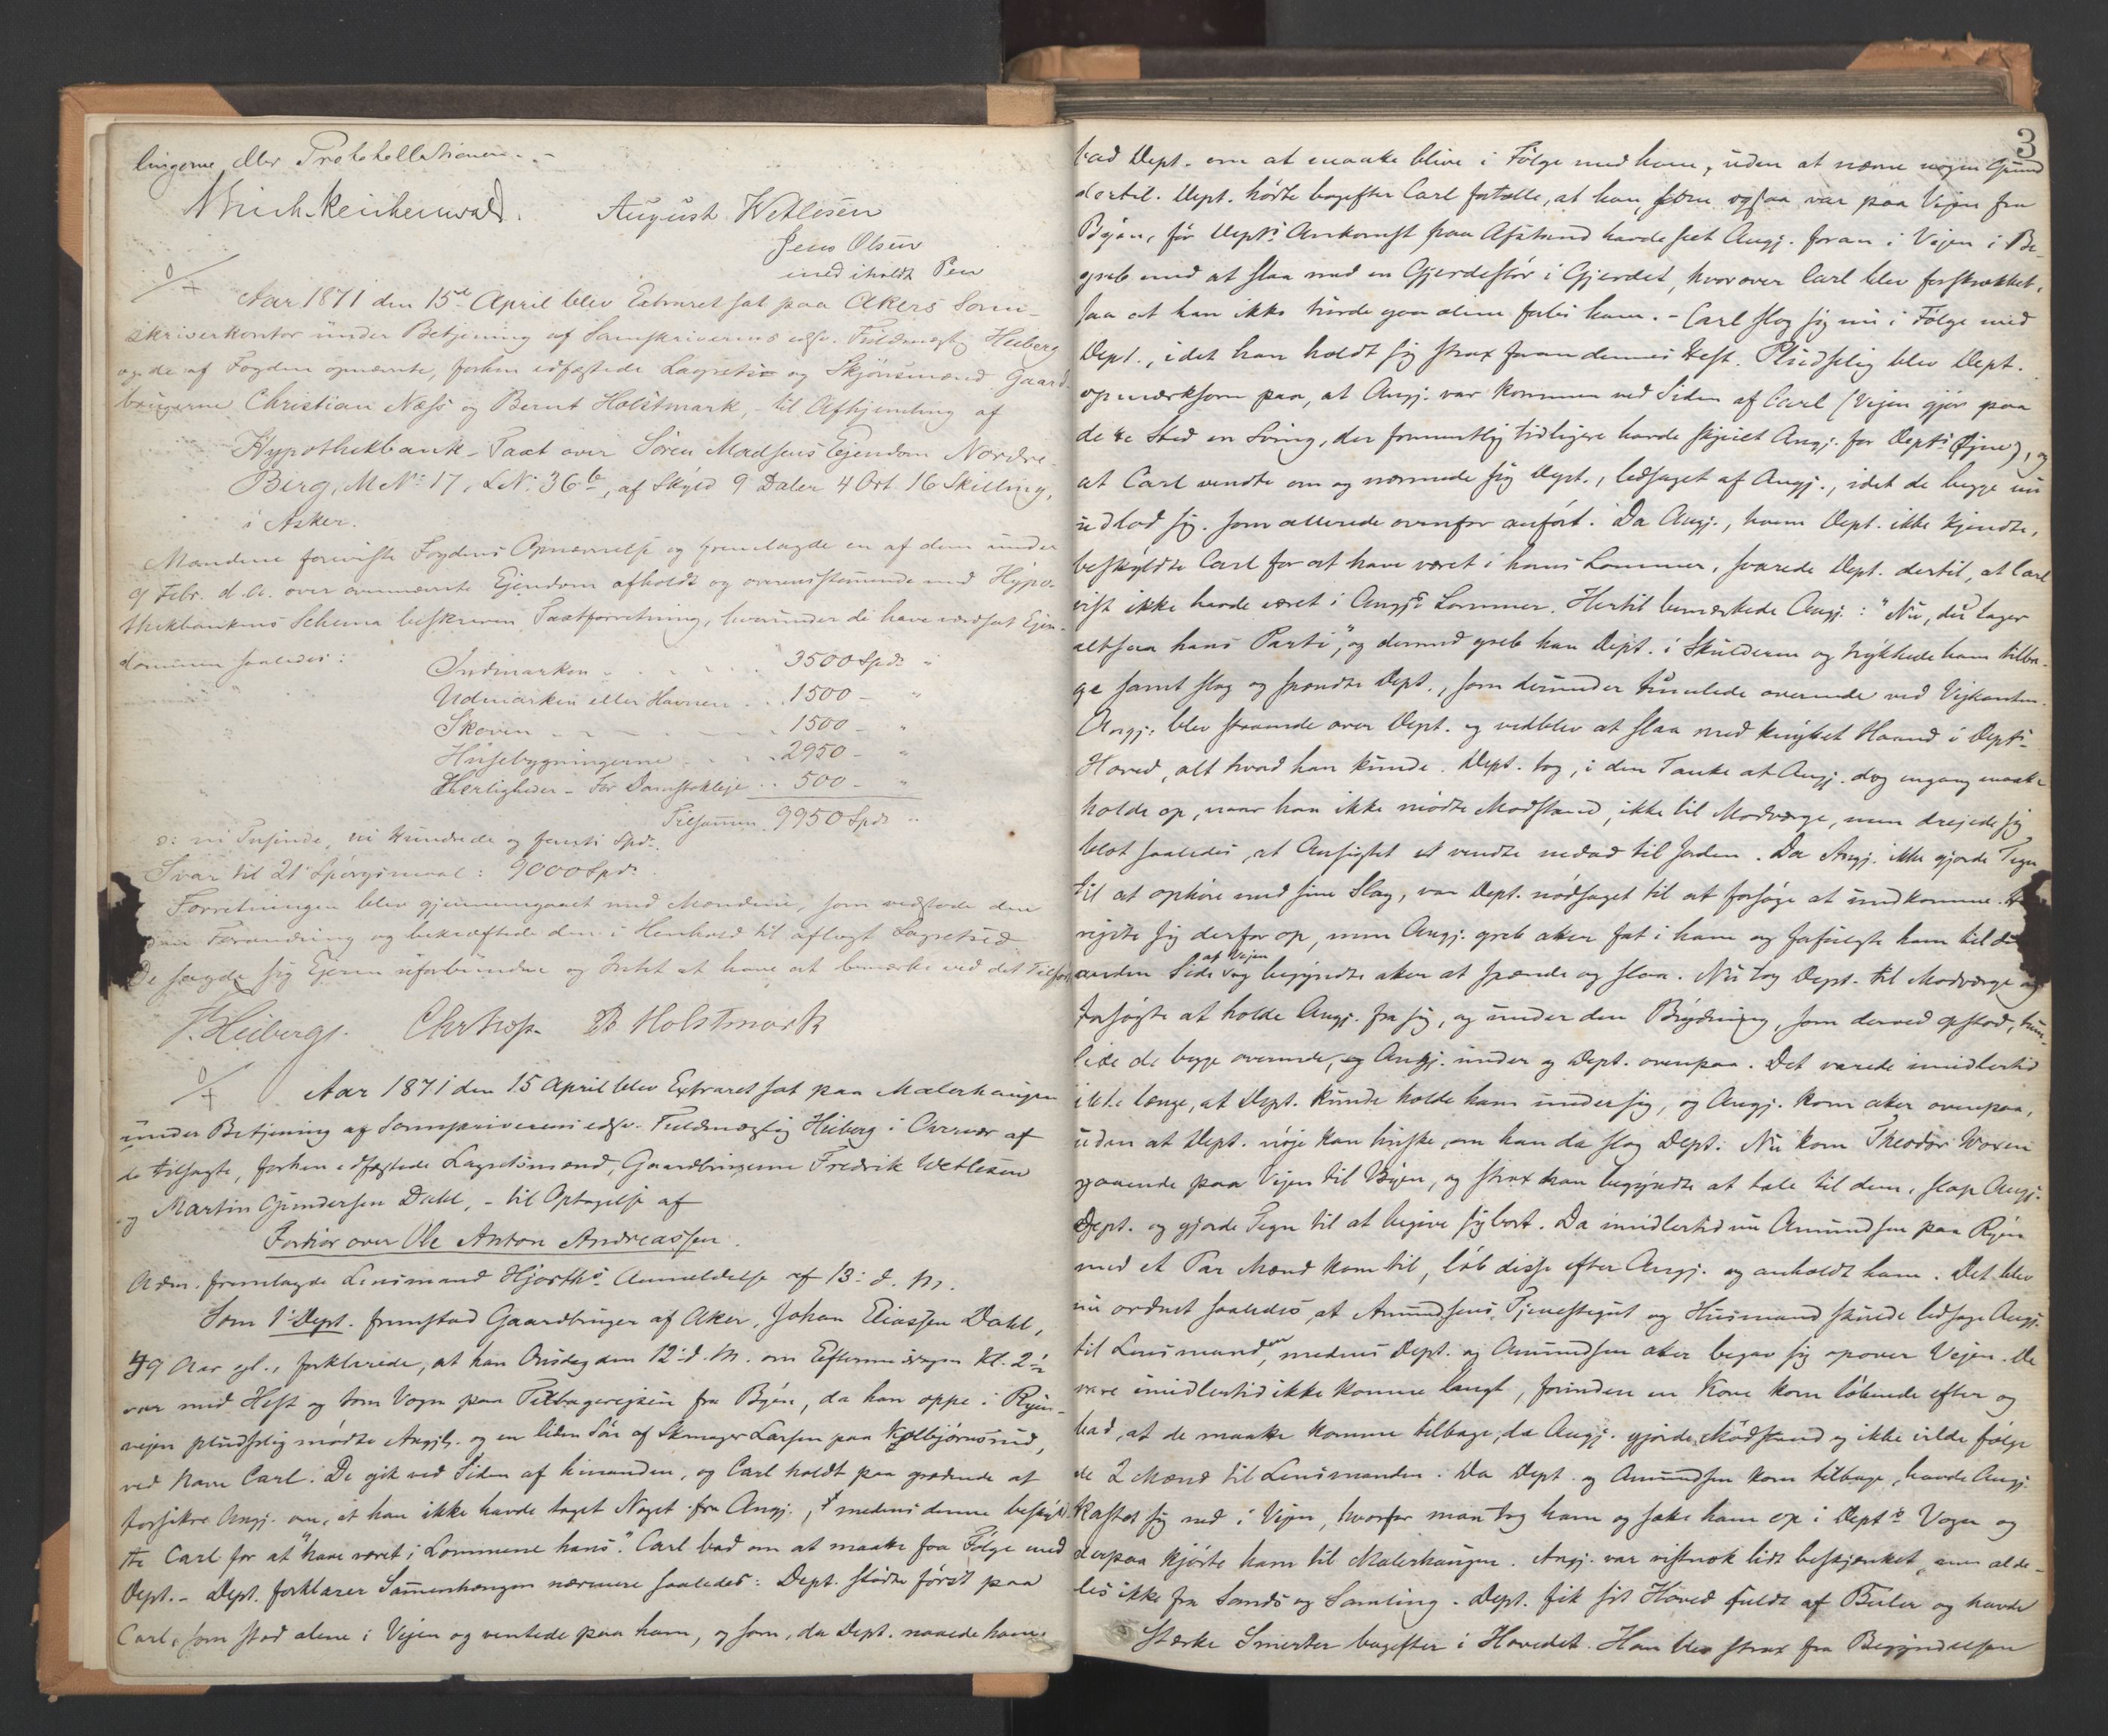 lingerne eller Prothokollationen. -
Mich. Reichenwald. August Wetlesen
Jens Olsen
med iholdt Pen
Aar 1871 den 15de April blev Extraret sat paa Akers Soren-
skriverkontor under Betjening af Sorenskriverens edsv. Fuldmægtig Heiberg
og de af Fogden opnævnte, forhen edfæstede Lagrets- og Skjønsmænd Gaard-
brugerne Christian Næss og Bernt Holstmark, - til Afhjemling af
Hypothekbank-Taxt over Søren Madsens Ejendom Nordre
Berg, M. No. 17, L. No. 36b, af Skyld 9 Daler 4 Ort 16 Skilling,
i Asker.
Mændene foreviste Fogdens Opnævnelse og fremlagde en af dem under
9 Febr. d. A. over ovennævnte Ejendom afholdt og overensstemmende med Hypo-
thekbankens Schema beskreven Taxtforretning, hvorunder de have værdsat Ejen-
dommen saaledes: Indmarken . . . . 3500 Spd. "
Udmarken eller Havnen . . 1500 - "
Skoven . . . . 1500 - "
Husebygningerne . . . 2950 - "
Herligheder - For Damstokleje . . 500 - "
Tilsammen 9950 Spd. "
ɔ: ni Tusinde, ni Hundrede og femti Spd.
Svar til 21 Spørgsmaal: 9000 Spd.
Forretningen blev gjennemgaaet med Mændene, som vedtode den
uden Forandring og bekræftede den i Henhold til aflagt Lagretsed.
De sagde sig Ejeren uforbundne og Intet at have at bemærke ved det Tilførte.
F. Heiberg. Chr Næss. B Holstmark
Aar 1871 den 15 April blev Extraret sat paa Malerhaugen
under Betjening af Sorenskriverens edsv. Fuldmægtig Heiberg i Overvær af
de tilsagte, forhen edfæstede Lagretsmænd, Gaardbrugerne Fredrik Wetlesen
og Martin Gundersen Dahl, - til Optagelse af
Forhør over Ole Anton Andreassen.
Adm. fremlagde Lensmand Hjorths Anmeldelse af 13. d. M.
Som 1. Dept. fremstod Gaardbruger af Aker, Johan Eliassen Dahl,
49 Aar gl., forklarede, at han Onsdag den 12. d. M. om Eftermiddagen Kl. 2
var med Hest og tom Vogn paa Tilbagerejsen fra Byen, da han oppe i Ryen-
vejen pludselig mødte Angjl. og en liden Søn af Skomager Larsen paa Kolbjørnsrud,
ved Navn Carl. De gik ved Siden af hinanden, og Carl holdt paa grædende at
forsikre Angj. om, at han ikke havde taget Noget fra Angj., medens denne beskyld-
te Carl for at "have været i Lommene hans". Carl bad om at maatte faa Følge med
Dept. - Dept. forklarer Sammenhængen nærmere saaledes: Dept. stødte først paa
Carl, som stod alene i Vejen og ventede paa ham, og som, da Dept. naaede ham,
3
bad Dept. om at maatte blive i Følge med ham, uden at nævne nogen Grund
dertil. Dept. hørte bagefter Carl fortælle, at han, som ogsaa var paa Vejen fra
Byen, før Depts Ankomst paa Afstand havde seet Angj. foran i Vejen i Be-
greb med at slaa med en Gjerdestør i Gjerdet, hvorover Carl blev forskrækket,
saa at han ikke turde gaa alene forbi ham. - Carl slog sig nu i Følge med
Dept., idet han holdt sig strax foran dennes Hest. Pludselig blev Dept.
opmærksom paa, at Angj. var kommen ved Siden af Carl (Vejen gjør paa
dette Sted en Sving, der formentlig tidligere havde skjult Angj. for Depts Øjne), og
at Carl vendte om og nærmede sig Dept., ledsaget af Angj., idet de begge nu
udlod sig, som allerede ovenfor anført. Da Angj., hvem Dept. ikke kjendte,
beskyldte Carl for at have været i hans Lommer, svarede Dept. dertil, at Carl
vist ikke havde været i Angjs Lommer. Hertil bemærkede Angj.: "Nu, du tager
altsaa hans Parti", og dermed greb han Dept. i Skulderen og trykkede ham tilba-
ge samt slog og spændte Dept., som derunder tumlede overende ved Vejkanten.
Angj. blev staaende over Dept. og vedblev at slaa med knyttet Haand i Depts
Hoved, alt hvad han kunde. Dept. tog, i den Tanke at Angj. dog engang maatte
holde op, naar han ikke mødte Modstand, ikke til Modværge, men drejede sig
blot saaledes, at Ansigtet vendte nedad til Jorden. Da Angj. ikke gjorde Tegn
til at ophøre med sine Slag, var Dept. nødsaget til at forsøge at undkomme.
rejste sig derfor op, men Angj. greb atter fat i ham og forfulgte ham til den
anden Side af Vejen og begyndte atter at spænde og slaa. Nu tog Dept. til Modværge og
forsøgte at holde Angj. fra sig, og under den Brydning, som derved opstod, tum-
lede de begge overende, Angj. under og Dept. ovenpaa. Det varede imidlertid
ikke længe, at Dept. kunde holde ham under sig, og Angj. kom atter ovenpaa,
uden at Dept. nøje kan huske, om han da slog Dept. Nu kom Theodor Woxen
gaaende paa Vejen til Byen, og strax han begyndte at tale til dem, slap Angj.
Dept. og gjorde Tegn til at begive sig bort. Da imidlertid nu Amundsen paa Ryen
med et Par Mænd kom til, løb disse efter Angj. og anholdt ham. Det blev
nu ordnet saaledes, at Amundsens Tjenestegut og Husmand skulde ledsage Angj.
til Lensmanden, medens Dept. og Amundsen atter begav sig opover Vejen. De
vare imidlertid ikke komne langt, førinden en Kone kom løbende efter og
bad, at de maatte komme tilbage, da Angj. gjorde Modstand og ikke vilde følge
de 2 Mænd til Lensmanden. Da Dept. og Amundsen kom tilbage, havde Angj.
kastet sig ned i Vejen, hvorfor man tog ham og satte ham op i Depts Vogn og
derpaa kjørte ham til Malerhaugen. Angj. var vistnok lidt beskjænket, men alde-
les ikke fra Sands og Samling. Dept. fik sit Hoved fuldt af Buler og havde
stærke Smerter bagefter i Hovedet. Han blev strax fra Begyndelsen